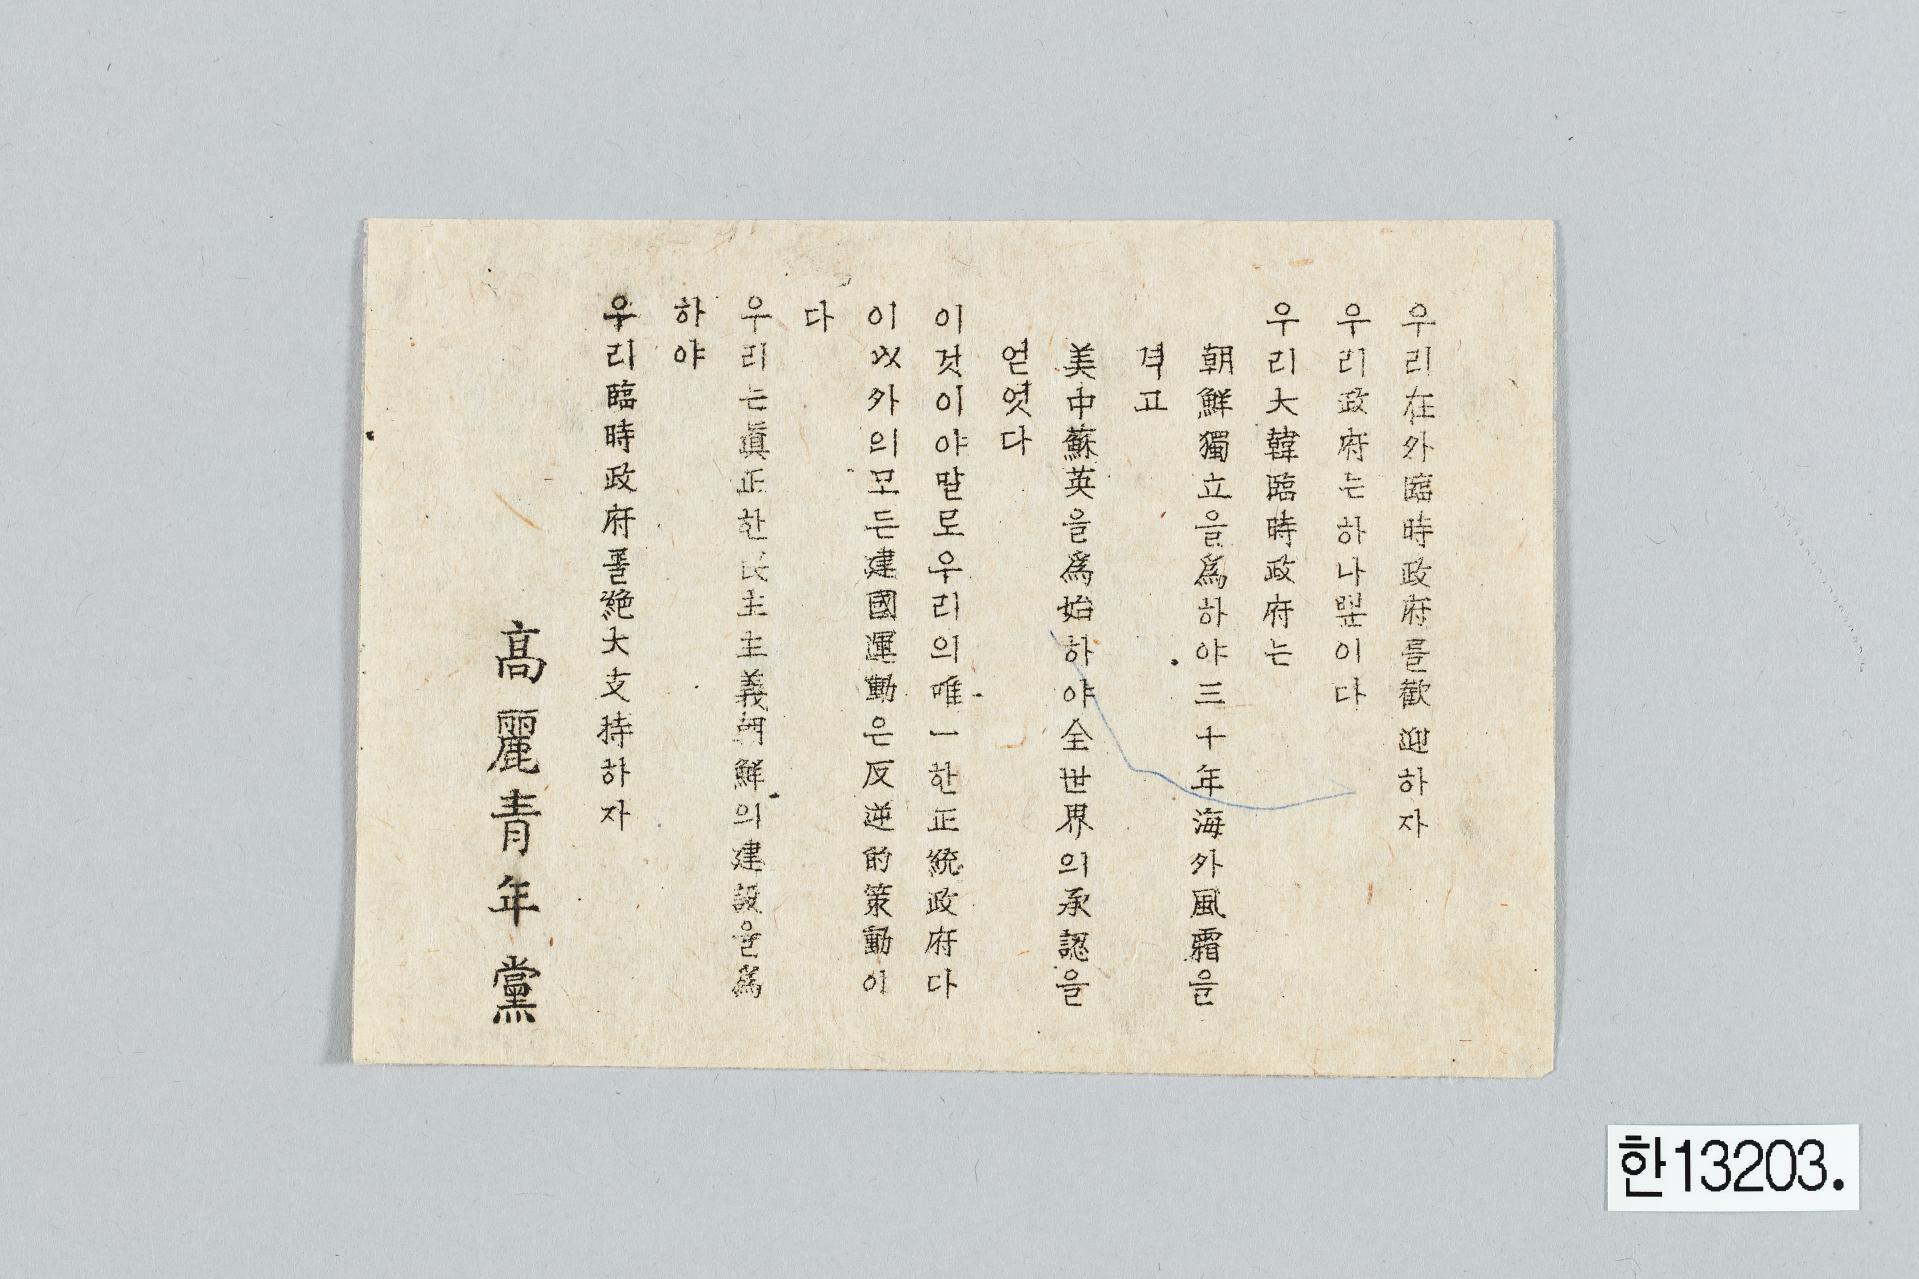 우리在外臨時政府를歡迎하자
우리政府는하나뿐이다
우리大韓臨時政府는
朝鮮獨立을爲하야三十年海外風霜을
격고
美中蘇英을爲始하야全世界의承認을
얻엿다
이것이야말로우리의唯一한正統政府다
이以外의모든建國運動은反逆的策動이
다
우리는眞正한民主主義朝鮮의建設을爲
하야
우리臨時政府를絶大支持하자
高麗靑年黨
한13203.